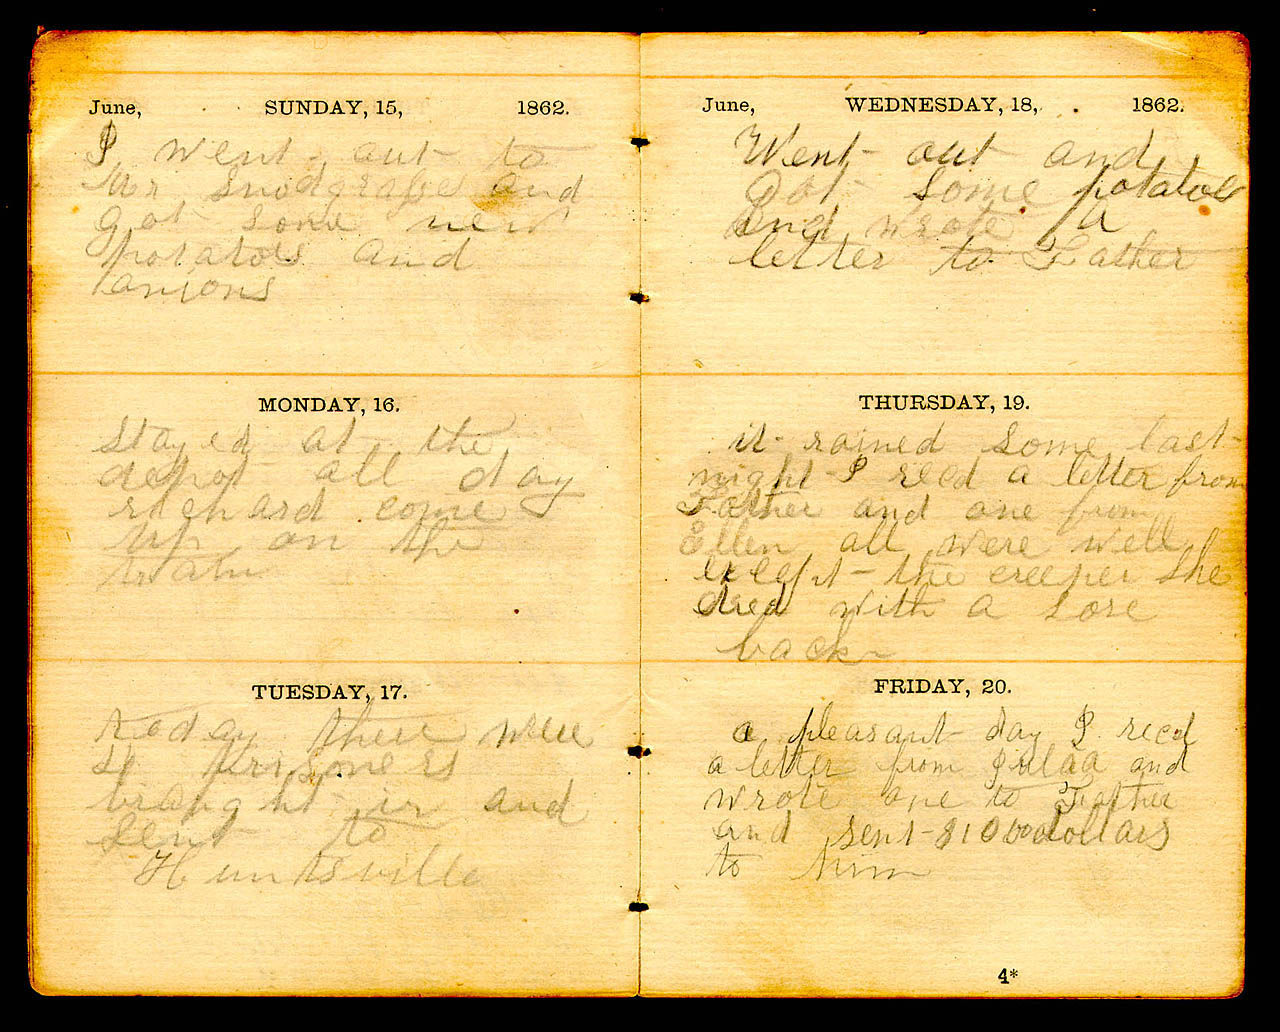 June, SUNDAY, 15, 1862.
I went out to
Mr Snodgrass and
got some new
potatoes and
onions
MONDAY, 16.
Stayed at the
depot all day
richard come
up on the
train
TUESDAY, 17.
today there were
prisoners
braught in and
sent to
Huntsville
June, WEDNESDAY, 18, 1862.
Went out and
got some potatoes
and wrote a
letter to Father
THURSDAY, 19.
it rained some last
night I recd a letter from
Father and one from
Ellen all were well
except the creeper She
died with a sore
back
FRIDAY, 20.
a pleasant day I recd
a letter from and
wrote one to Father
and sent $10 00 dollars
to him
4*